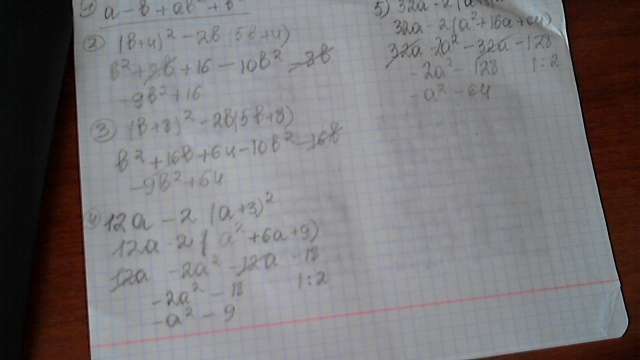 1) a-b+ab²+b
2) (b+4)² - 2b(5b+4)
b²+8b+16-10b²-8b
-9b²+16
3) (b+8)² - 2b(5b+8)
b²+16b+64-10b²-16b
-9b²+64
4) 12a-2(a+3)²
12a-2(a²+6a+9)
12a-2a²-12a-18
-2a²-18 1:2
-a²-9
5) 32a-2(a+
32a-2(a²+16a+64)
32a-2a²-32a-128
-2a²-128 1:2
-a²-64